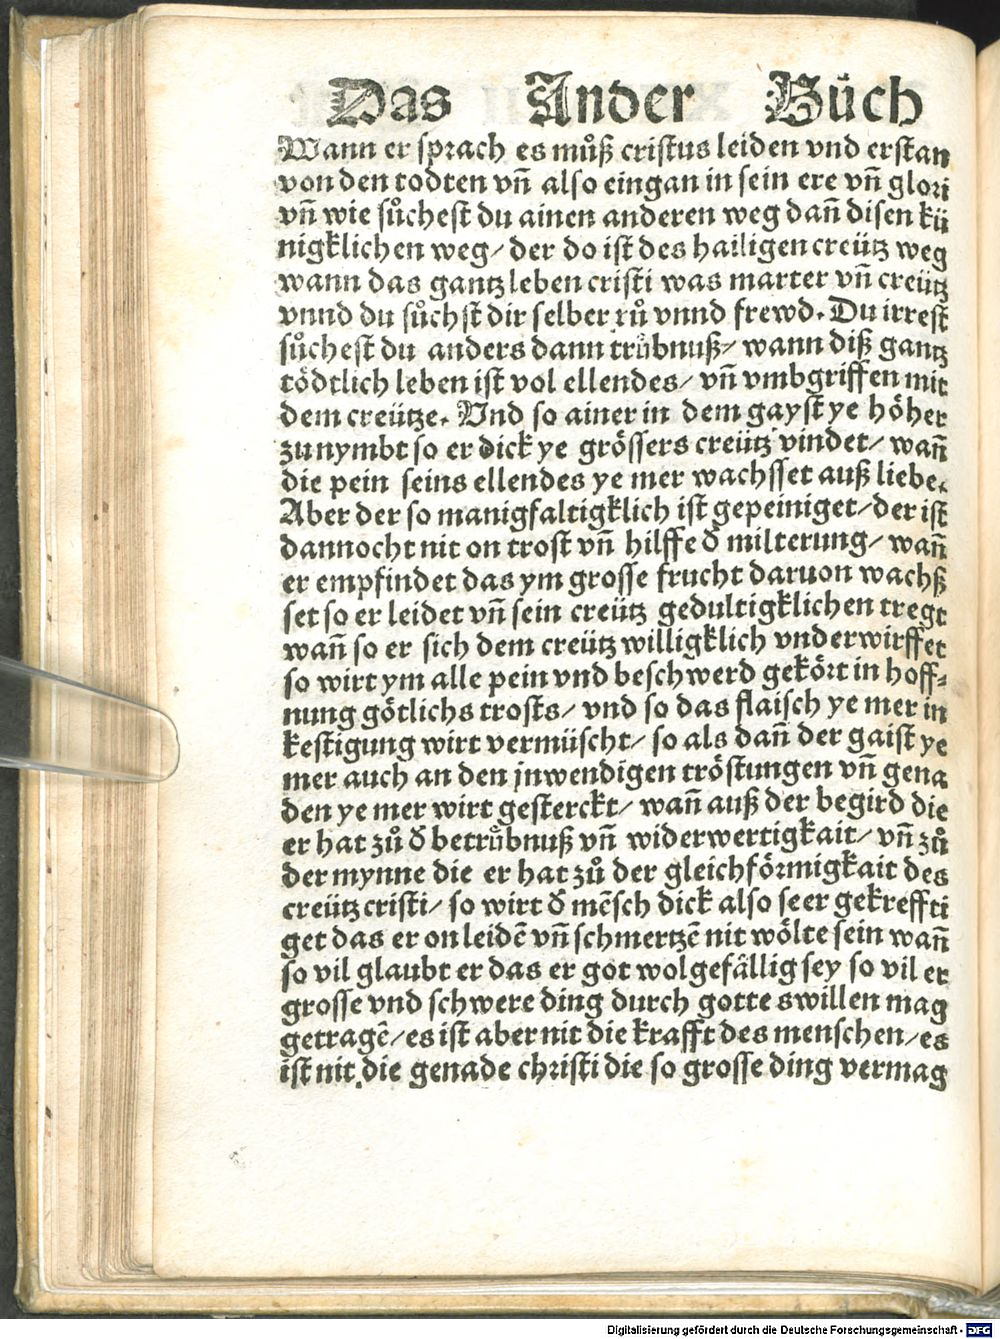 Das Ander Bůch
Wann er sprach es můß cristus leiden vnd erstan
von den todten vn̄ also eingan in sein ere vn̄ glori
vn̄ wie sůchest du ainen anderen weg dan̄ disen kü
nigklichen weg/ der do ist des hailigen creütz weg
wann das gantz leben cristi was marter vn̄ creütz
vnnd du sůchst dir selber rů vnnd frewd. Du irrest
sůchest du anders dann trůbnuß/ wann diß gantz
tödtlich leben ist vol ellendes/ vn̄ vmbgriffen mit
dem creütze. Vnd so ainer in dem gayst ye höher
zu nymbt so er dick ye grössers creütz vindet/ wan̄
die pein seins ellendes ye mer wachsset auß liebe.
Aber der so manigfaltigklich ist gepeiniget/ der ist
dannocht nit on trost vn̄ hilffe đ milterung/ wan̄
er empfindet das ym grosse frucht daruon wachß
set so er leidet vn̄ sein creütz gedultigklichen tregt
wan̄ so er sich dem creütz willigklich vnderwirffet
so wirt ym alle pein vnd beschwerd gekört in hoff⸗
nung götlichs trosts/ vnd so das flaisch ye mer in
kestigung wirt vermüscht/ so als dan̄ der gaist ye
mer auch an den jnwendigen tröstungen vn̄ gena
den ye mer wirt gesterckt/ wan̄ auß der begird die
er hat zů đ betrůbnuß vn̄ widerwertigkait/ vn̄ zů
der mynne die er hat zů der gleichförmigkait des
creütz cristi/ so wirt đ mēsch dick also seer gekreffti
get das er on leidē vn̄ schmertzē nit wölte sein wan̄
so vil glaubt er das er got wolgefällig sey so vil er
grosse vnd schwere ding durch gottes willen mag
getragē/ es ist aber nit die krafft des menschen/ es
ist nit die genade christi die so grosse ding vermag
Digitalisierung gefördert durch die Deutsche Forschungsgemeinschaft - DFG